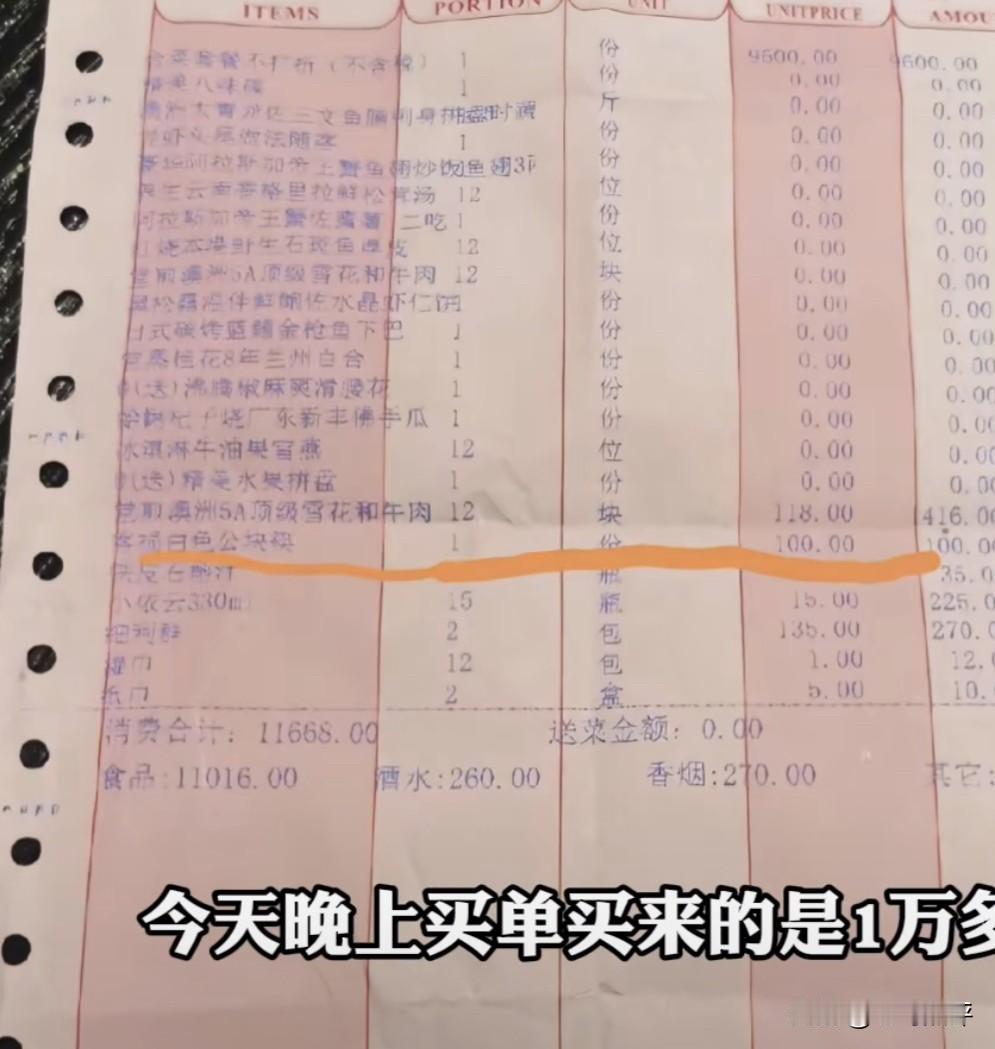 ITEMS PORTION UNIT UNITPRICE AMOU
套餐不打折（不含税） 1 份 9500.00 9500.00
精美八味碟 1 份 0.00 0.00
三文鱼腩刺身拼盘时蔬 斤 0.00 0.00
做法随选 1 份 0.00 0.00
阿拉斯加帝王蟹鱼翅炒饭鱼翅3 份 0.00 0.00
云南香格里拉鲜松茸汤 12 位 0.00 0.00
阿拉斯加帝王蟹佐薯 二吃 1 份 0.00 0.00
红烧本港野生石斑鱼厚皮 12 位 0.00 0.00
堂煎澳洲5A顶级雪花和牛肉 12 块 0.00 0.00
黑松露伴鲜鲍佐水晶虾仁饼 份 0.00 0.00
日式碳烤蓝鳍金枪鱼下巴 1 份 0.00 0.00
蒸桂花8年兰州百合 1 份 0.00 0.00
(送)沸腾椒麻爽滑腰花 1 份 0.00 0.00
烧广东新丰佛手瓜 1 份 0.00 0.00
冰淇淋牛油果官燕 12 位 0.00 0.00
(送)精美水果拼盘 1 份 0.00 0.00
堂煎澳洲5A顶级雪花和牛肉 12 块 118.00 1416.00
白色公块 1 份 100.00 100.00
瓶 35.0
小依云330ml 15 瓶 15.00 225.0
细利群 2 包 135.00 270.0
湿巾 12 包 1.00 12.
纸巾 2 盒 5.00 10.
消费合计：11668.00 送菜金额：0.00
食品:11016.00 酒水:260.00 香烟:270.00 其它:
今天晚上买单买来的是1万多